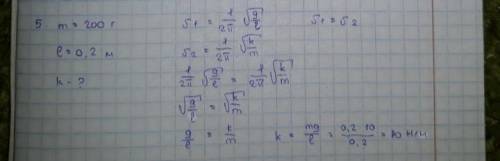 5 m = 200 г
ℓ = 0,2 м
k - ?
ν₁ = 1/2π √(g/ℓ) ν₁ = ν₂
ν₂ = 1/2π √(k/m)
1/2π √(g/ℓ) = 1/2π √(k/m)
√(g/ℓ) = √(k/m)
g/ℓ = k/m k = mg/ℓ = 0,2 · 10/0,2 = 10 Н/м